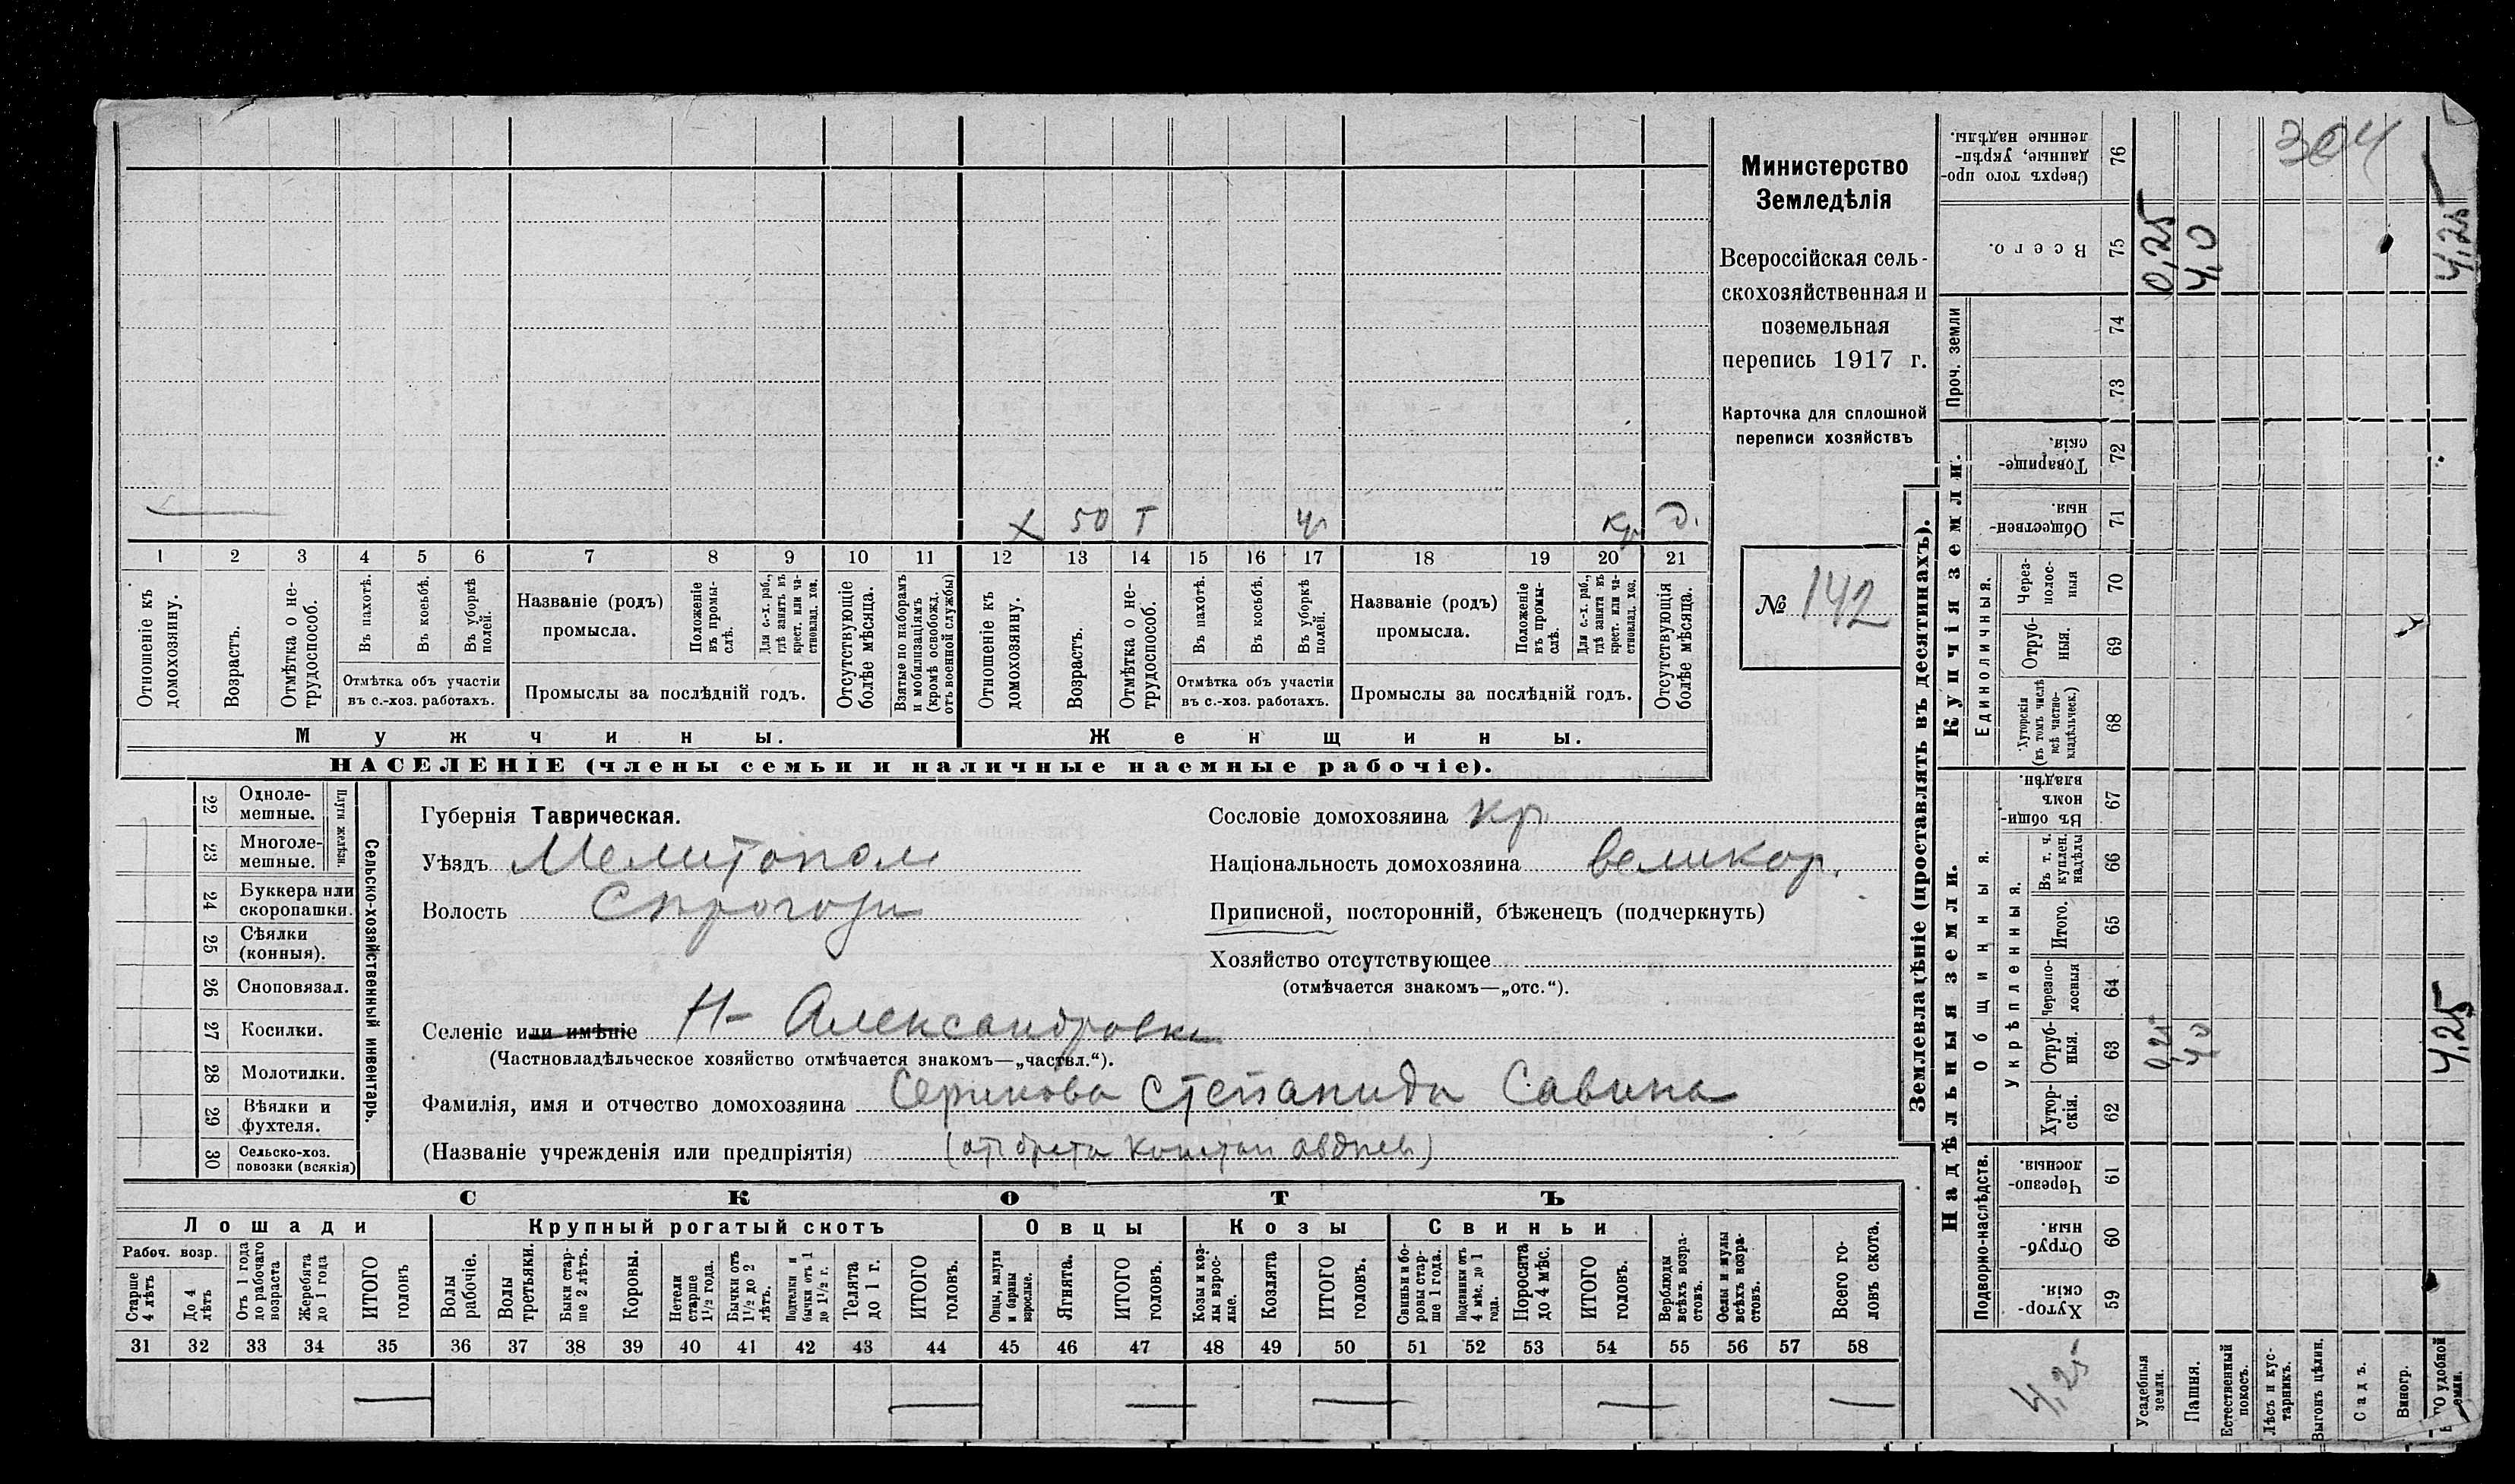 304
Министерство
Земледѣлія
Всероссійская сель-
скохозяйственная и
поземельная
перепись 1917 г.
Карточка для сплошной
переписи хозяйствъ
№ 142
х 50 Т ч кр д.
1 2 3 4 5 6 7 8 9 10 11 12 13 14 15 16 17 18 19 20 21
Отношеніе къ домохозяину.
Возрастъ.
Отмѣтка о не-трудоспособ.
Въ пахотѣ.
Въ косьбѣ.
Въ уборкѣ полей.
Отмѣтка объ участіи
въ с.-хоз. работахъ.
Названіе (родъ)
промысла.
Положеніе въ промы-слѣ.
Для с.-х. раб., гдѣ занятъ въ крест. или ча-стновлад. хоз.
Промыслы за послѣдній годъ.
Отсутствующіе болѣе мѣсяца.
Взятые по наборамъ и мобилизаціямъ (кромѣ освобожд. отъ военной службы)
Отношеніе къ домохозяину.
Возрастъ.
Отмѣтка о не-трудоспособ.
Въ пахотѣ.
Въ косьбѣ.
Въ уборкѣ полей.
Отмѣтка объ участіи
въ с.-хоз. работахъ.
Названіе (родъ)
промысла.
Положеніе въ промы-слѣ.
Для с.-х. раб., гдѣ занята въ крест. или ча-стновлад. хоз.
Промыслы за послѣдній годъ.
Отсутствующія болѣе мѣсяца.
Мужчины.
Женщины.
НАСЕЛЕНІЕ (члены семьи и наличные наемные рабочіе).
22 Одноле-мешные.
23 Многоле-мешные.
Плуги желѣзн.
24 Буккера или скоропашки.
25 Сѣялки (конныя).
26 Сноповязал.
27 Косилки.
28 Молотилки.
29 Вѣялки и фухтеля.
30 Сельско-хоз. повозки (всякія)
Сельско-хозяйственный инвентарь.
Губернія Таврическая.
Уѣздъ Мелитопол
Волость
Селеніе или имѣніе Н-Александровка
(Частновладѣльческое хозяйство отмѣчается знакомъ—„частвл.“).
Фамилія, имя и отчество домохозяина Серикова Степанида Савина
(Названіе учрежденія или предпріятія)
Сословіе домохозяина кр.
Національность домохозяина великор.
Приписной, посторонній, бѣженецъ (подчеркнуть)
Хозяйство отсутствующее
(отмѣчается знакомъ—„отс.“).
СКОТЪ
Лошади
Крупный рогатый скотъ
Овцы
Козы
Свиньи
Рабоч. возр.
Старше 4 лѣтъ
До 4 лѣтъ
Отъ 1 года до рабочаго возраста
Жеребята до 1 года
ИТОГО головъ
Волы рабочіе.
Волы третьяки.
Быки стар-ше 2 лѣтъ.
Коровы.
Нетели старше 1½ года.
Бычки отъ 1½ до 2 лѣтъ.
Подтелки и бычки отъ 1 до 1½ г.
Телята до 1 г.
ИТОГО головъ.
Овцы, валухи и бараны взрослые.
Ягнята.
ИТОГО головъ.
Козы и коз-лы взрос-лые.
Козлята
ИТОГО головъ.
Свиньи и бо-ровы стар-ше 1 года.
Подсвинки отъ 4 мѣс. до 1 года.
Поросята до 4 мѣс.
ИТОГО головъ.
Верблюды всѣхъ возра-стовъ.
Ослы и мулы всѣхъ возра-стовъ.
Всего го-ловъ скота.
31 32 33 34 35 36 37 38 39 40 41 42 43 44 45 46 47 48 49 50 51 52 53 54 55 56 57 58
Землевладѣніе (проставлять въ десятинахъ).
Надѣльныя земли.
Купчія земли.
Проч. земли
Подворно-наслѣдств.
Общинныя.
Укрѣпленныя.
Единоличныя.
Хутор-скія. 59
Отруб-ныя 60
Черезпо-лосныя. 61
Хутор-скія. 62
Отруб-ныя. 63
Черезпо-лосныя 64
Итого. 65
Въ т. ч. куплен. надѣлы 66
Въ общи-номъ владѣн. 67
Хуторскія (въ томъ числѣ всѣ частно-владѣльческ.) 68
Отруб-ныя. 69
Через-полос-ныя 70
Обществен-ныя. 71
Товарище-скія. 72
73
74
Всего. 75
Сверхъ того про-данные, укрѣп-ленные надѣлы. 76
Усадебныя земли.
Пашня.
Естественный покосъ.
Лѣсъ и кус-тарникъ.
Выгонъ цѣлин.
Садъ.
Виногр.
удобной земли.
4,25
0,25
4,0
4,25
0,25
4,0
4,25